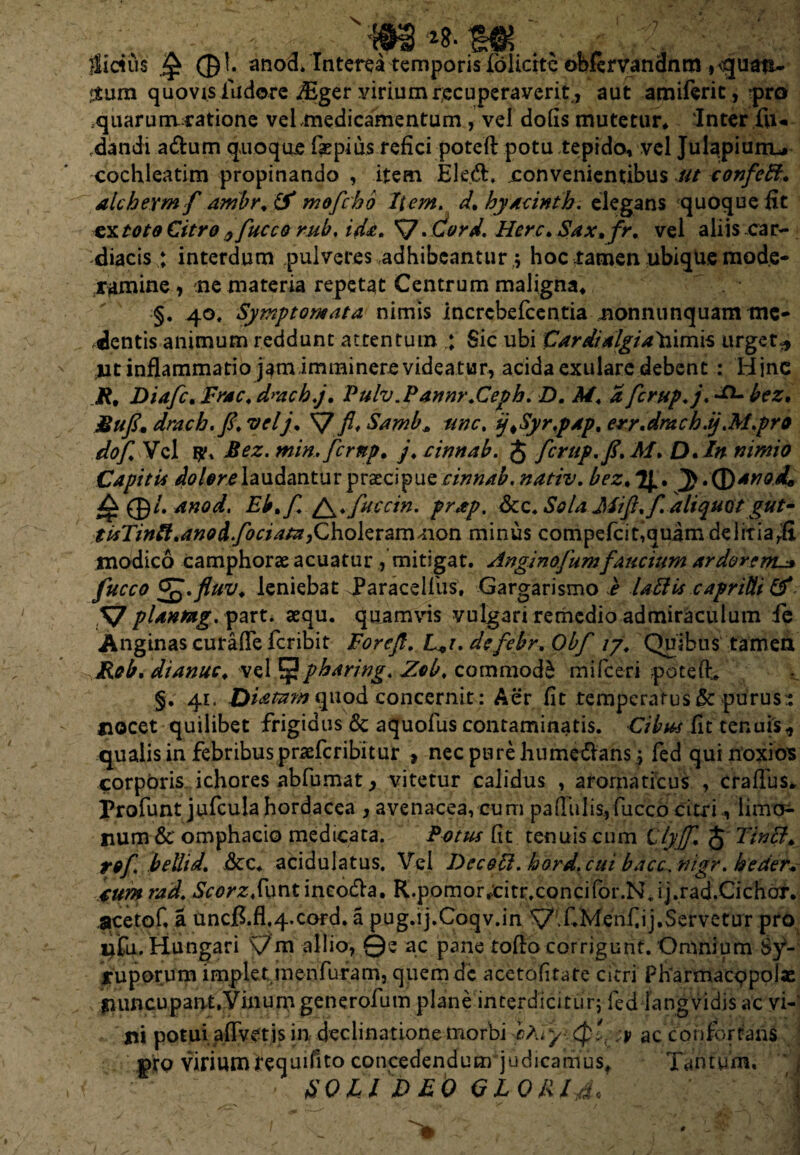 28.
licius 🜺 🜕l. anod. Interea temporis solicite observandum, quan-
tum quovis sudore Æger virium recuperaverit, aut amiserit, pro
quarum ratione vel medicamentum, vel dosis mutetur. Inter su-
dandi actum quoque sæpiùs refici potest potu tepido, vel Julapium
cochleatim propinando, item Elect. convenientibus ut confect.
alcherm s ambr. & moscho Item. d. hyacinth. elegans quoque fit
ex toto Citro, succo rub. idæ. 🜄. Cord. Herc. Sax. fr. vel aliis car-
diacis: interdum pulveres adhibeantur; hoc tamen ubique mode-
ramine, ne materia repetat Centrum maligna.
§. 40. Symptomata nimis increbescentia nonnunquam me-
dentis animum reddunt attentum: Sic ubi Cardialgia nimis urget,
ut inflammatio jam imminere videatur, acida exulare debent: Hinc
R. Diasc. Frac. drach. j. Pulv. Pannr. Ceph. D. M. a scrup. j. bez.
Russ. drach. ß. vel j. 🜄 fl. Samb. unc. ij. Syr. pap. err. drach. ij. M. pro
dos. Vel ℞. Bez. min. scrup. j. cinnab. ♁ scrup. ß. M. D. In nimio
Capitis dolore laudantur præcipue cinnab. nativ. bez. ♃. ☽. 🜕 anod.
🜺 🜕l. anod. Eb. s. 🜂. succin. præp. &c. Sola Mist. s. aliquot gut-
tis Tinct. anod. sociata, Choleram non minùs compescit, quàm delitia, si
modicô camphoræ acuatur, mitigat. Anginosum faucium ardorem
succo ♋. fluv. leniebat Paracelsus, Gargarismo è lactis caprilli &
🜄 plantag. part. æqu. quamvis vulgari remedio admiraculum se
Anginas curâsse scribit Forest. L. 1. de febr. Obs 17. Quibus tamen
Rob. dianuc. vel pharing. Zob. commodè misceri potest.
§. 41. Diætam quod concernit: Aër sit temperatus & purus:
nocet quilibet frigidus & aquosus contaminatis. Cibus sit tenuis,
qualis in febribus præscribitur, nec purè humectans; sed qui noxios
corporis ichores absumat, vitetur calidus, aromaticus, crassus.
Prosunt juscula hordacea, avenacea, cum passulis, succo citri, limo-
num & omphacio medicata. Potus sit tenuis cum Clyss. ♁ Tinct.
ros. bellid. &c. acidulatus. Vel Decoct. hord. cui bacc. nigr. heder.
cum rad. Scorz. sunt incocta. R. pomor. citr. concisor. N. ij. rad. Cichor.
acetos. ā uncß. fl. 4. cord. ā pug. ij. Coqv. in 🜄. s. Mens. ij. Servetur pro
usu. Hungari 🜄m allio, 🜔e ac pane tosto corrigunt. Omnium Sy-
ruporum implet mensuram, quem de acetositate citri Pharmacopolæ
nuncupant. Vinum generosum planè interdicitur; sed langvidis ac vi-
ni potui assvetis in declinatione morbi ac confortans
pro virium requisito concedendum judicamus. Tantum.
SOLI DEO GLORIA.